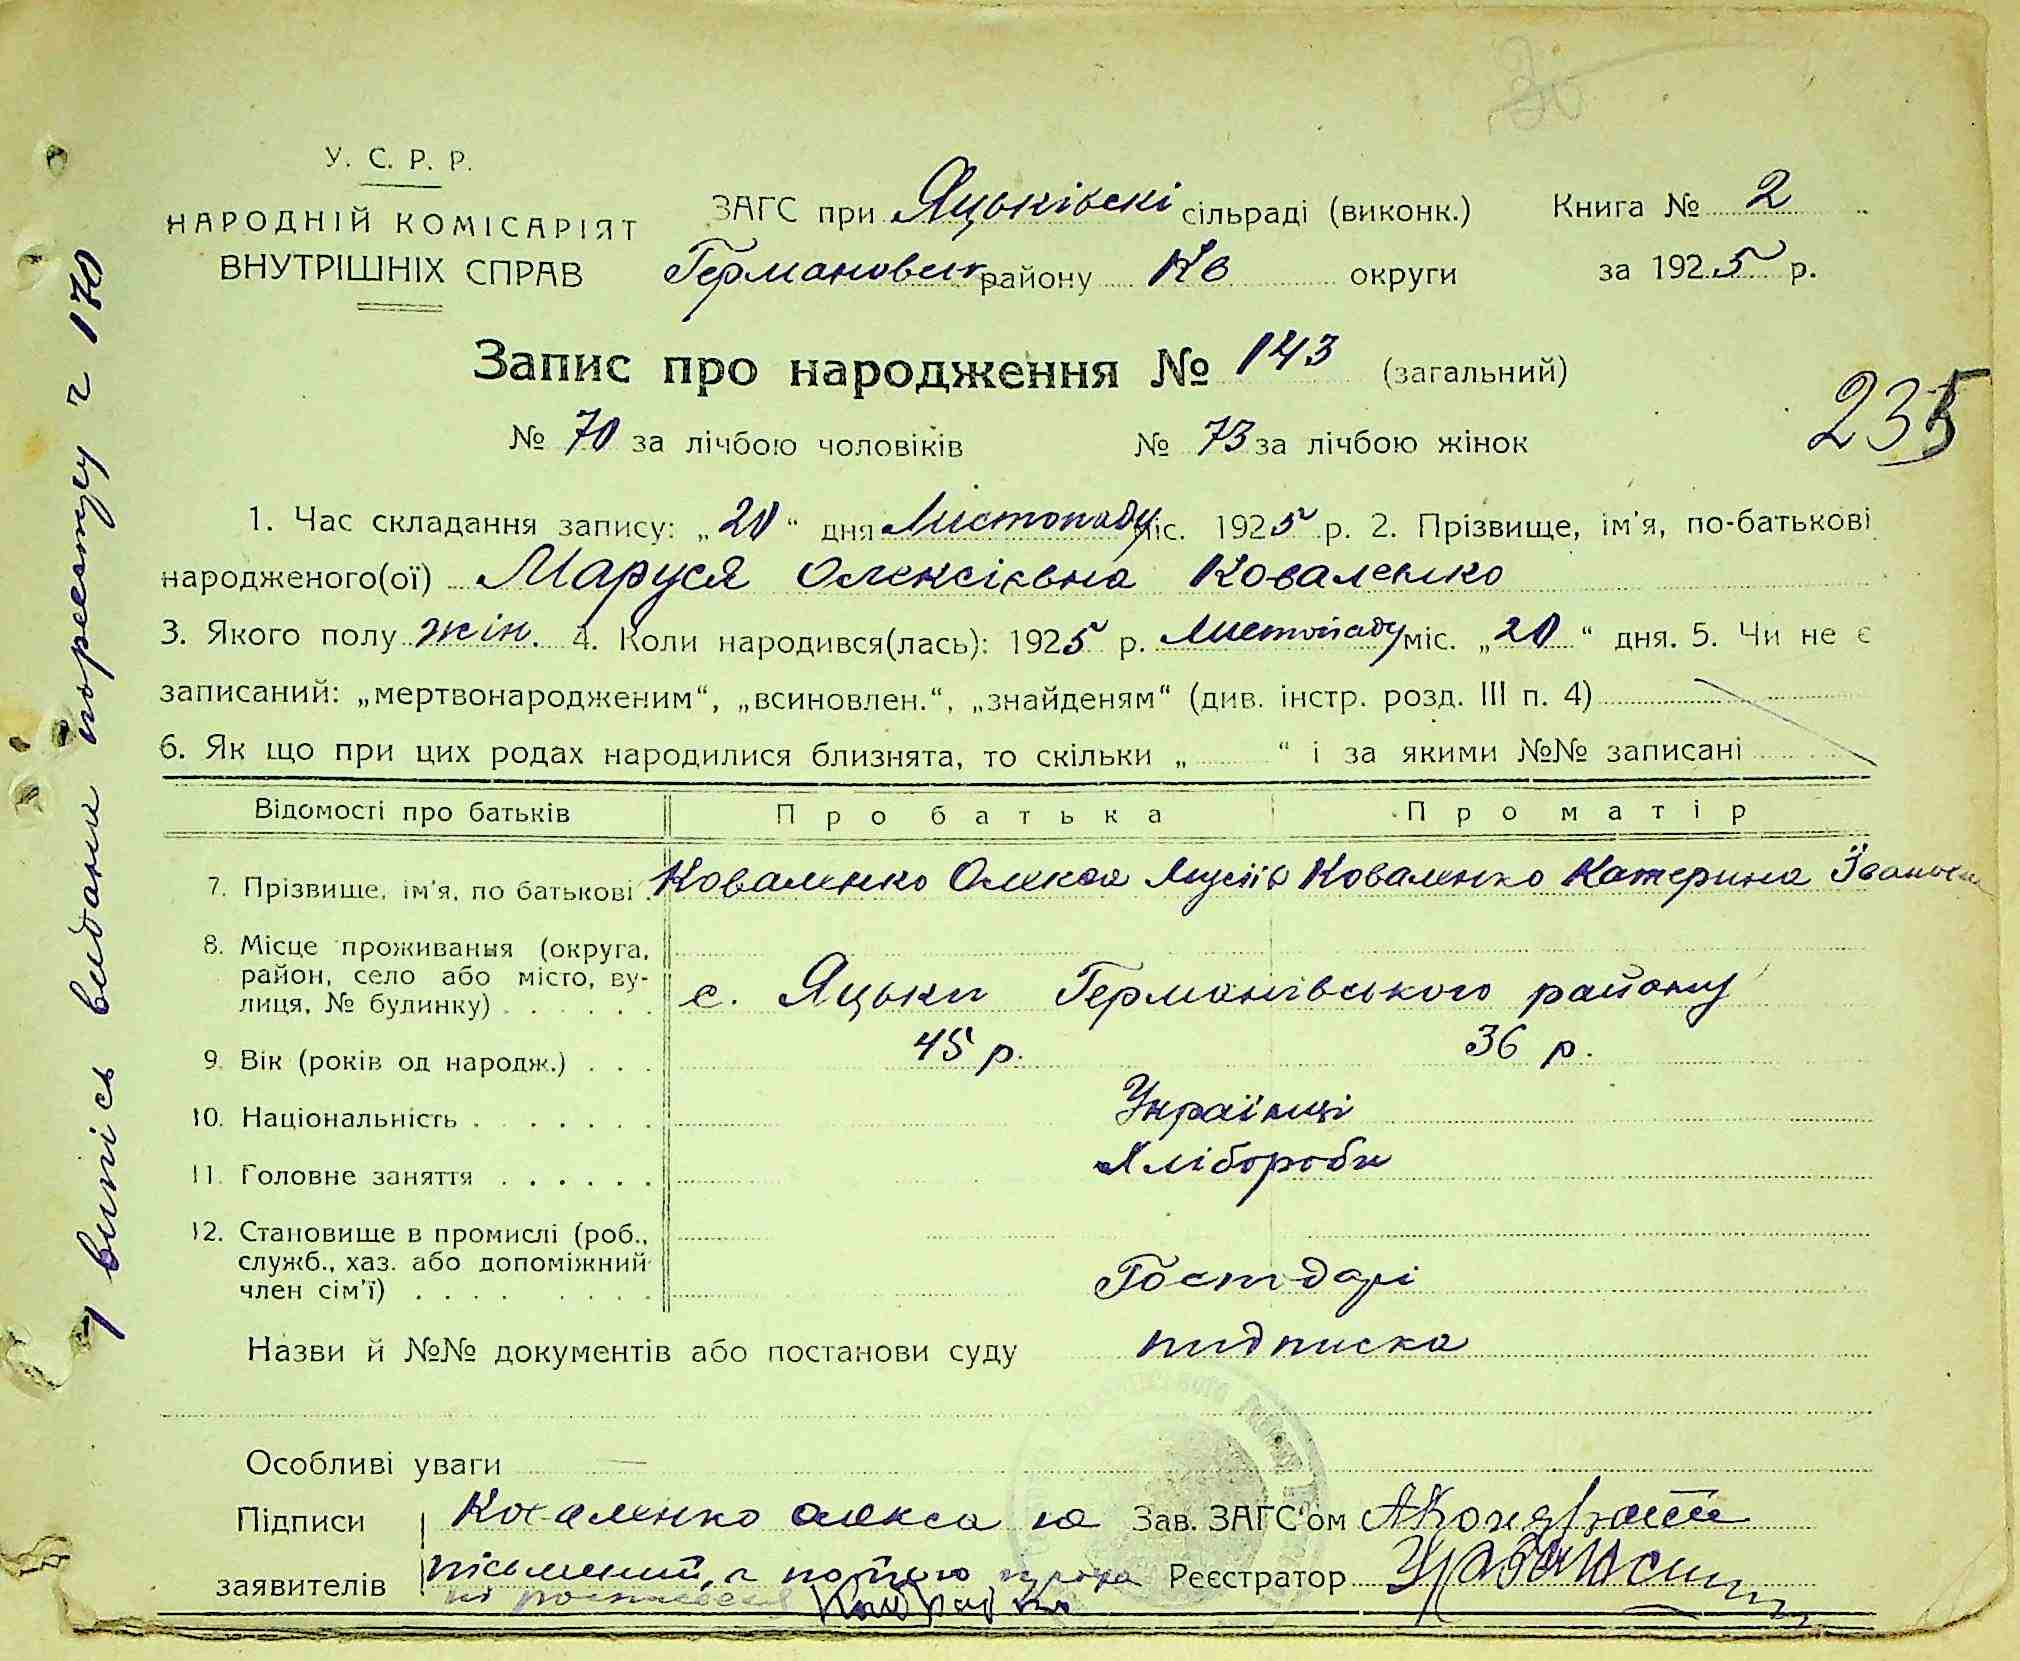 У. С. Р. Р.
НАРОДНІЙ КОМІСАРІЯТ
ВНУТРІШНІХ СПРАВ
ЗАГС при Яцьківскі сільраді (виконк.) Книга № 2
Германовск району Кв округи за 1925 р.
Запис про народження № 143 (загальний)
№ 70 за лічбою чоловіків № 73 за лічбою жінок
235
1. Час складання запису: „20“ дня Листопаду міс. 1925 р. 2. Прізвище, ім'я, по-батькові
народженого(ої) Маруся Олексієвна Коваленко
3. Якого полу жін. 4. Коли народився(лась): 1925 р. Листопаду міс. „20“ дня. 5. Чи не є
записаний: „мертвонародженим“, „всиновлен.“, „знайденям“ (див. інстр. розд. III п. 4)
6. Як що при цих родах народилися близнята, то скільки „ “ і за якими №№ записані
Відомості про батьків Про батька Про матір
7. Прізвище, ім'я, по батькові Коваленко Олекса Мусіїв Коваленко Катерина Іванов
8. Місце проживання (округа,
район, село або місто, ву-
лиця, № будинку) с. Яцьки Германівського району
9. Вік (років од народж.) 45 р. 36 р.
10. Національність Українці
11. Головне заняття Хлібороби
12. Становище в промислі (роб.,
служб., хаз. або допоміжний
член сім'ї) Господарі
Назви й №№ документів або постанови суду підписка
Особливі уваги —
Підписи Коваленко олекса не Зав. ЗАГС'ом
заявителів письмений, а по його Реєстратор
1 випісь видани по реестру г 170